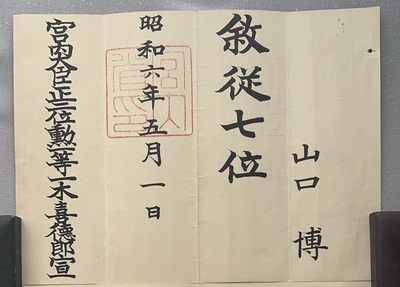 山口 博
敘従七位
昭和六年五月一日
宮内大臣正三位勲一等一木喜徳郎宣